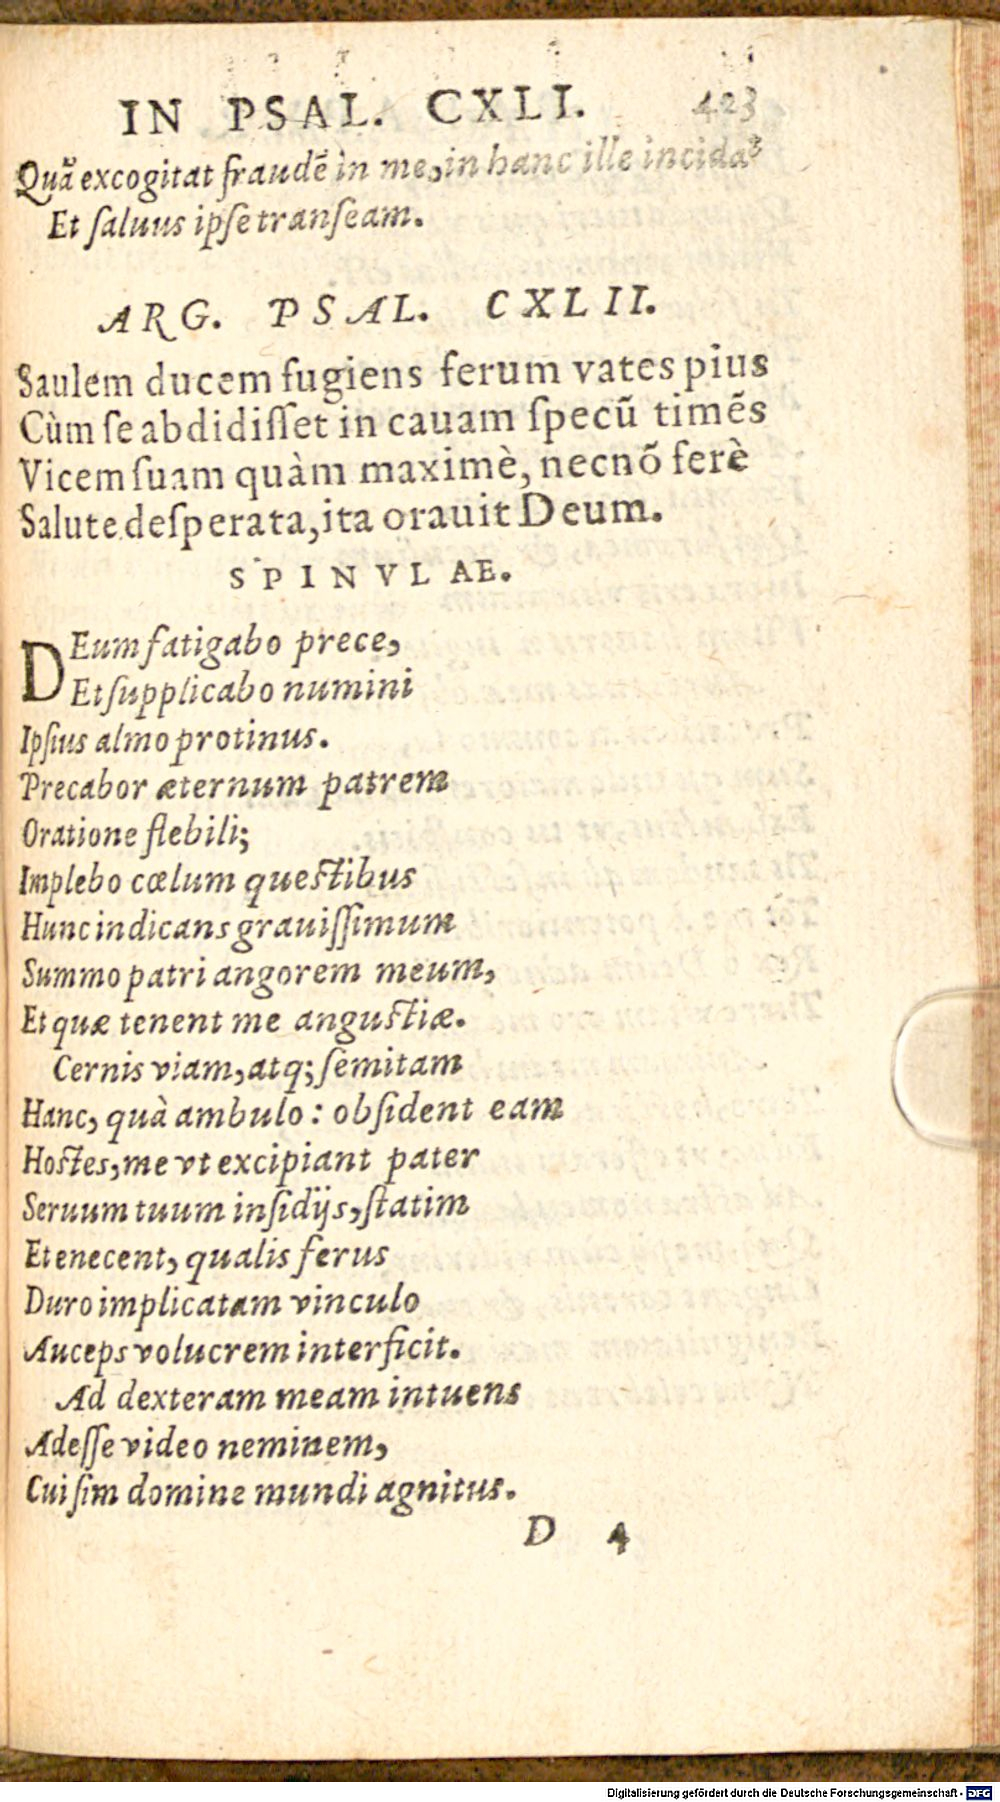 IN PSAL. CXLI. 423
Quā excogitat fraudē in me, in hanc ille incidat
Et saluus ipse transeam.
ARG. PSAL. CXLII.
Saulem ducem fugiens ferum vates pius
Cùm se abdidiſſet in cauam ſpecū timēs
Vicem ſuam quàm maximè, necnō ferè
Salute deſperata, ita orauit Deum.
SPINVLAE.
DEum fatigabo prece,
Et ſupplicabo numini
Ipſius almo protinus.
Precabor æternum patrem
Oratione flebili;
Implebo cœlum queſtibus
Hunc indicans grauiſſimum
Summo patri angorem meum,
Et quæ tenent me anguſtiæ.
Cernis viam, atq; ſemitam
Hanc, quà ambulo: obſident eam
Hoſtes, me vt excipiant pater
Seruum tuum inſidijs, ſtatim
Et enecent, qualis ferus
Duro implicatam vinculo
Auceps volucrem interficit.
Ad dexteram meam intuens
Adeſſe video neminem,
Cui ſim domine mundi agnitus.
D 4
Digitalisierung gefördert durch die Deutsche Forschungsgemeinschaft - DFG